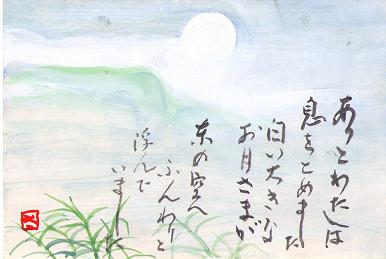 あっとわたしは
息をとめました
白い大きな
お月さまが
東の空へ
ふんわりと
浮んで
いました